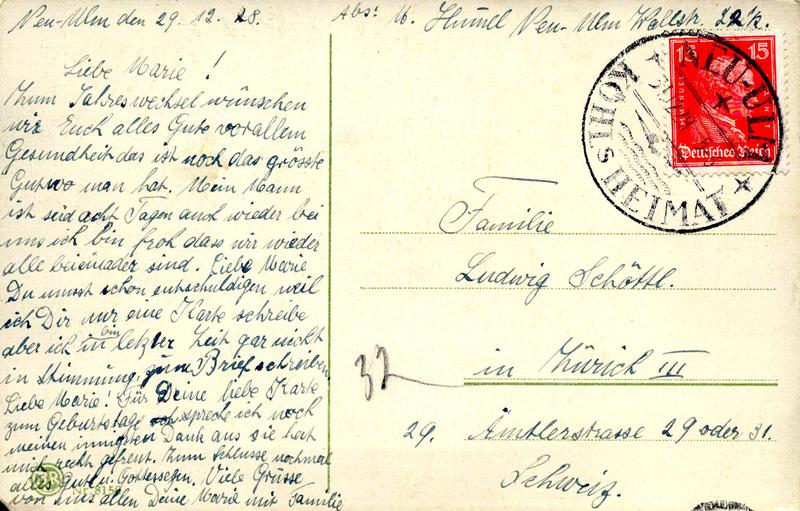 Neu-Ulm den 29.12.28.
Abs: M. Hummel Neu-Ulm Wallstr. 22½.
Liebe Marie!
Zum Jahreswechsel wünschen
wir Euch alles Gute vorallem
Gesundheit das ist noch das grösste
Gut wo man hat. Mein Mann
ist seid acht Tagen auch wieder bei
uns ich bin froh dass wir wieder
alle beieinader sind. Liebe Marie
Du musst schon entschuldigen weil
ich Dir nur eine Karte schreibe
bin
aber ich in letzter Zeit gar nicht
in Stimmung zum Brief schreiben.
Liebe Marie! Für Deine liebe Karte
zum Geburtstage spreche ich noch
meinen innigsten Dank aus sie hat
mich recht gefreut. Zum Schlusse nochmal
alles Gute u. Gottessegen. Viele Grüsse
von uns allen Deine Marie mit Familie
Nr. 8150
NEU-ULM
HEIMAT
15 15
IMMANUEL KANT
Deutsches Reich
Familie
Ludwig Schöttl.
in Zürich III
37
29. Ämtlerstrasse 29 oder 31.
Schweiz.